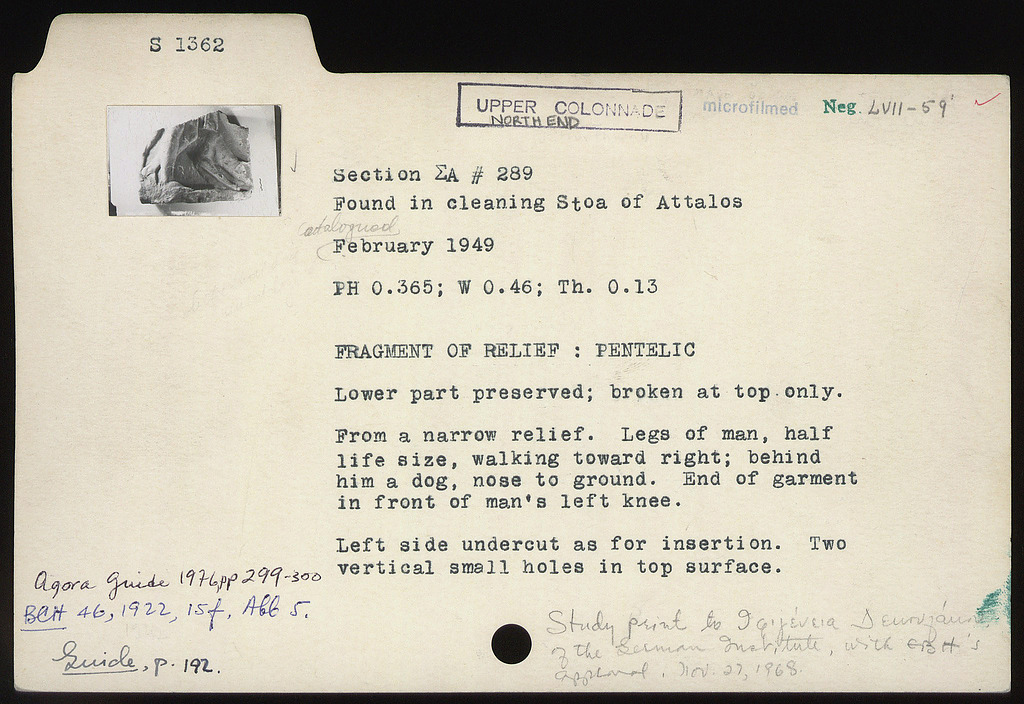 S 1362
UPPER COLONNADE
NORTH END
microfilmed
Neg. LVII-59
Section ΣA # 289
Found in cleaning Stoa of Attalos
catalogued
February 1949
PH 0.365; W 0.46; Th. 0.13
FRAGMENT OF RELIEF : PENTELIC
Lower part preserved; broken at top only.
From a narrow relief. Legs of man, half
life size, walking toward right; behind
him a dog, nose to ground. End of garment
in front of man's left knee.
Left side undercut as for insertion. Two
vertical small holes in top surface.
Agora Guide 1976, pp 299-300
BCH 46, 1922, 15f, Abb 5.
Guide, p. 192.
Study print to Ἰφιγένεια
of the German Institute, with
approval. Nov. 27, 1968.